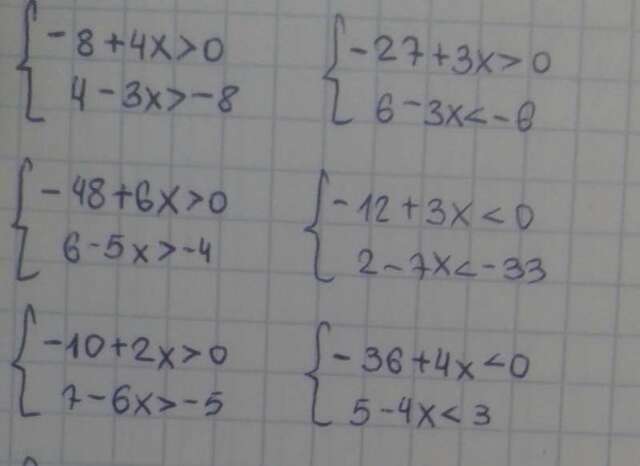 -8+4x>0
4-3x>-8
-27+3x>0
6-3x<-6
-48+6x>0
6-5x>-4
-12+3x<0
2-7x<-33
-10+2x>0
7-6x>-5
-36+4x<0
5-4x<3